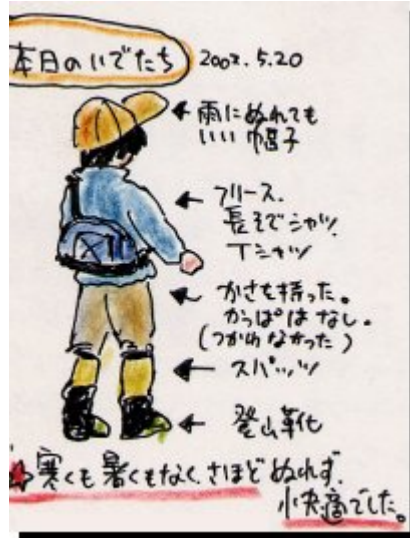 本日のいでたち 2002.5.20
雨にぬれても
いい帽子
フリース.
長そでシャツ.
Tシャツ
かさを持った。
かっぱはなし。
(つかわなかった)
スパッツ
登山靴
☆寒くも暑くもなく、さほどぬれず.
小快適でした。